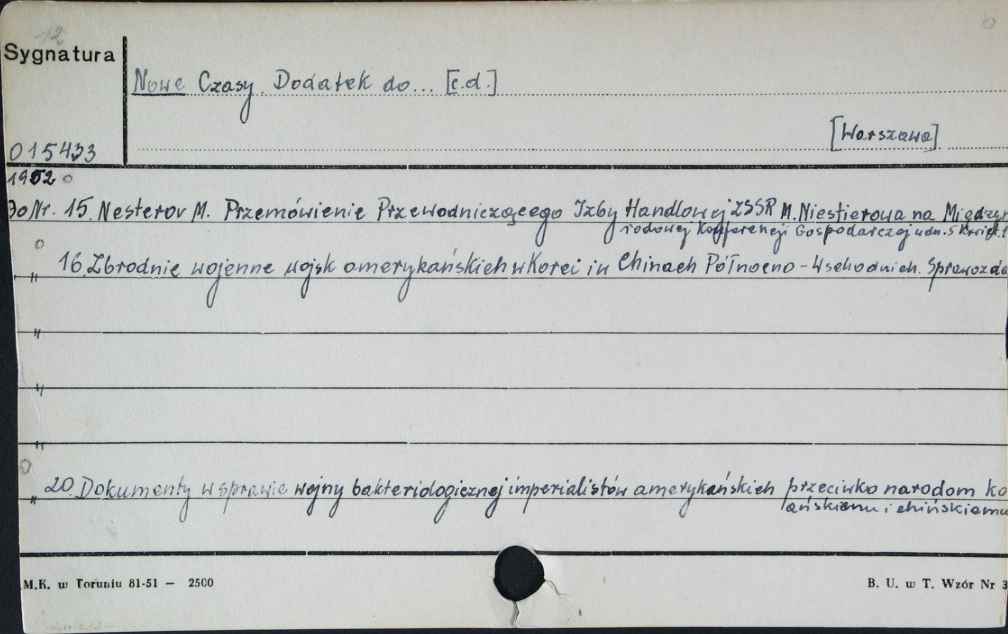 12
Sygnatura
Nowe Czasy. Dodatek do... [c.d.]
[Warszawa]
015433
1952
Do Nr. 15. Nesterov M. Przemówienie Przewodniczącego Izby Handlowej ZSSR M. Niestierowa na Międzyn
rodowej Konferencji Gospodarczej w dn. 5 kwiet.
" 16. Zbrodnie wojenne wojsk amerykańskich w Korei i w Chinach Północno-Wschodnich. Sprawozda
"
"
"
" 20. Dokumenty w sprawie wojny bakteriologicznej imperialistów amerykańskich przeciwko narodom ko
ańskiemu i chińskiemu
M.K. w Toruniu 81-51 — 2500
B. U. w T. Wzór Nr 3